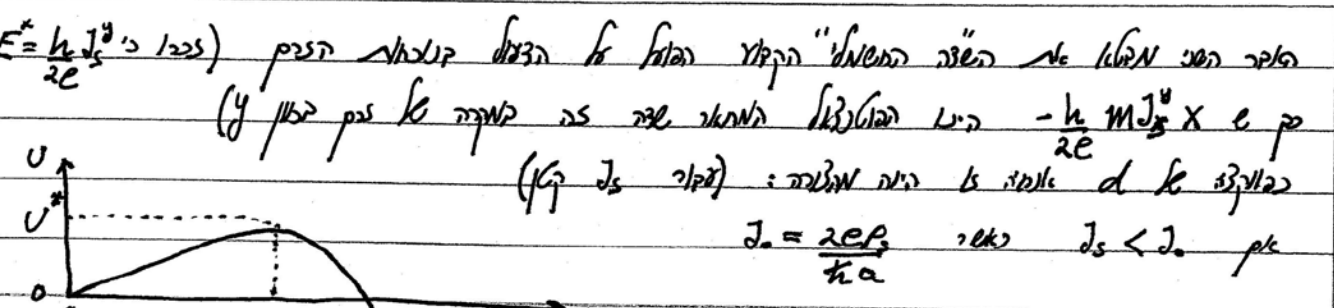 האבר השני מבטא את "השדה החשמלי" הקבוע הפועל על הדפול בנוכחות הזרם (זכרו כי E* = h/2e J_s^y
כך ש -h/2e m J_s^y x הינו הפוטנציאל המתאר שדה זה במקרה של זרם בכוון y)
כפונקציה של d אנרגיה זו הינה מהצורה: (עבור J_s קטן)
אם J_s < J_0 כאשר J_0 = 2eρ_s/ħa
U
U*
0